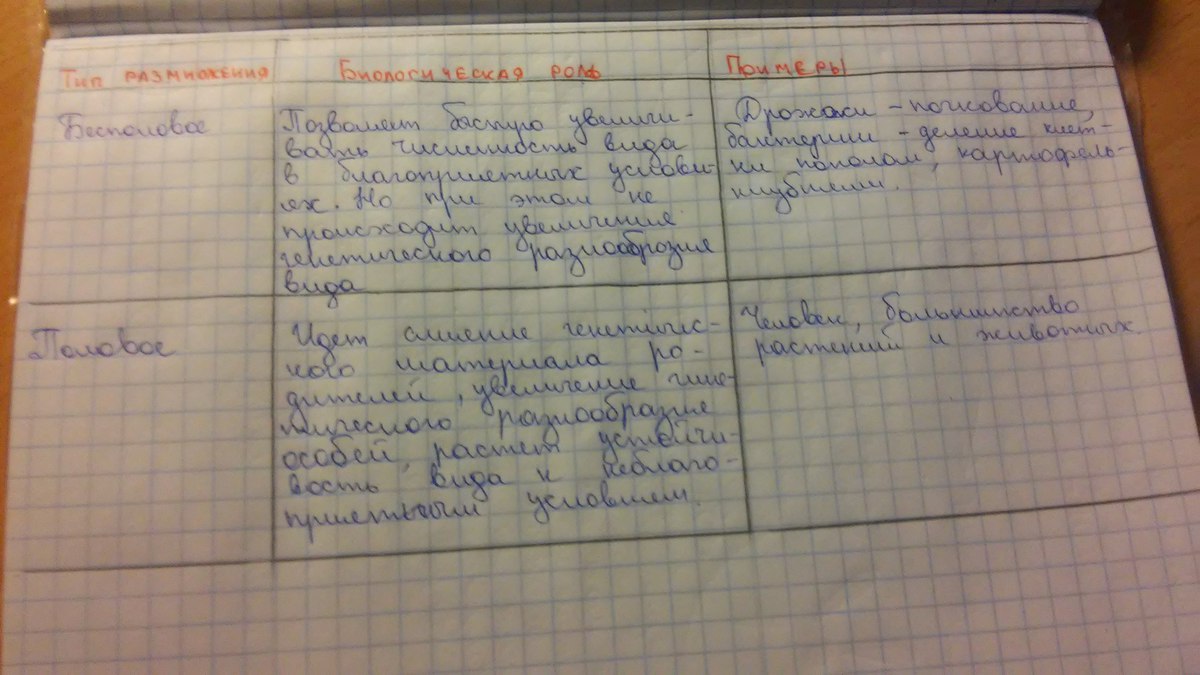 Тип размножения
Биологическая роль
Примеры
Бесполовое
Позволяет быстро увеличи-
вать численность вида
в благоприятных услови-
ях. Но при этом не
происходит увеличение
генетического разнообразия
вида
Дрожжи - почкование,
бактерии - деление клет-
ки пополам, картофель-
клубнями.
Половое
Идет слияние генетичес-
кого материала ро-
дителей, увеличение гине-
тического разнообразие
особей, растет устойчи-
вость вида к неблаго-
приятным условиям.
Человек, большинство
растений и животных